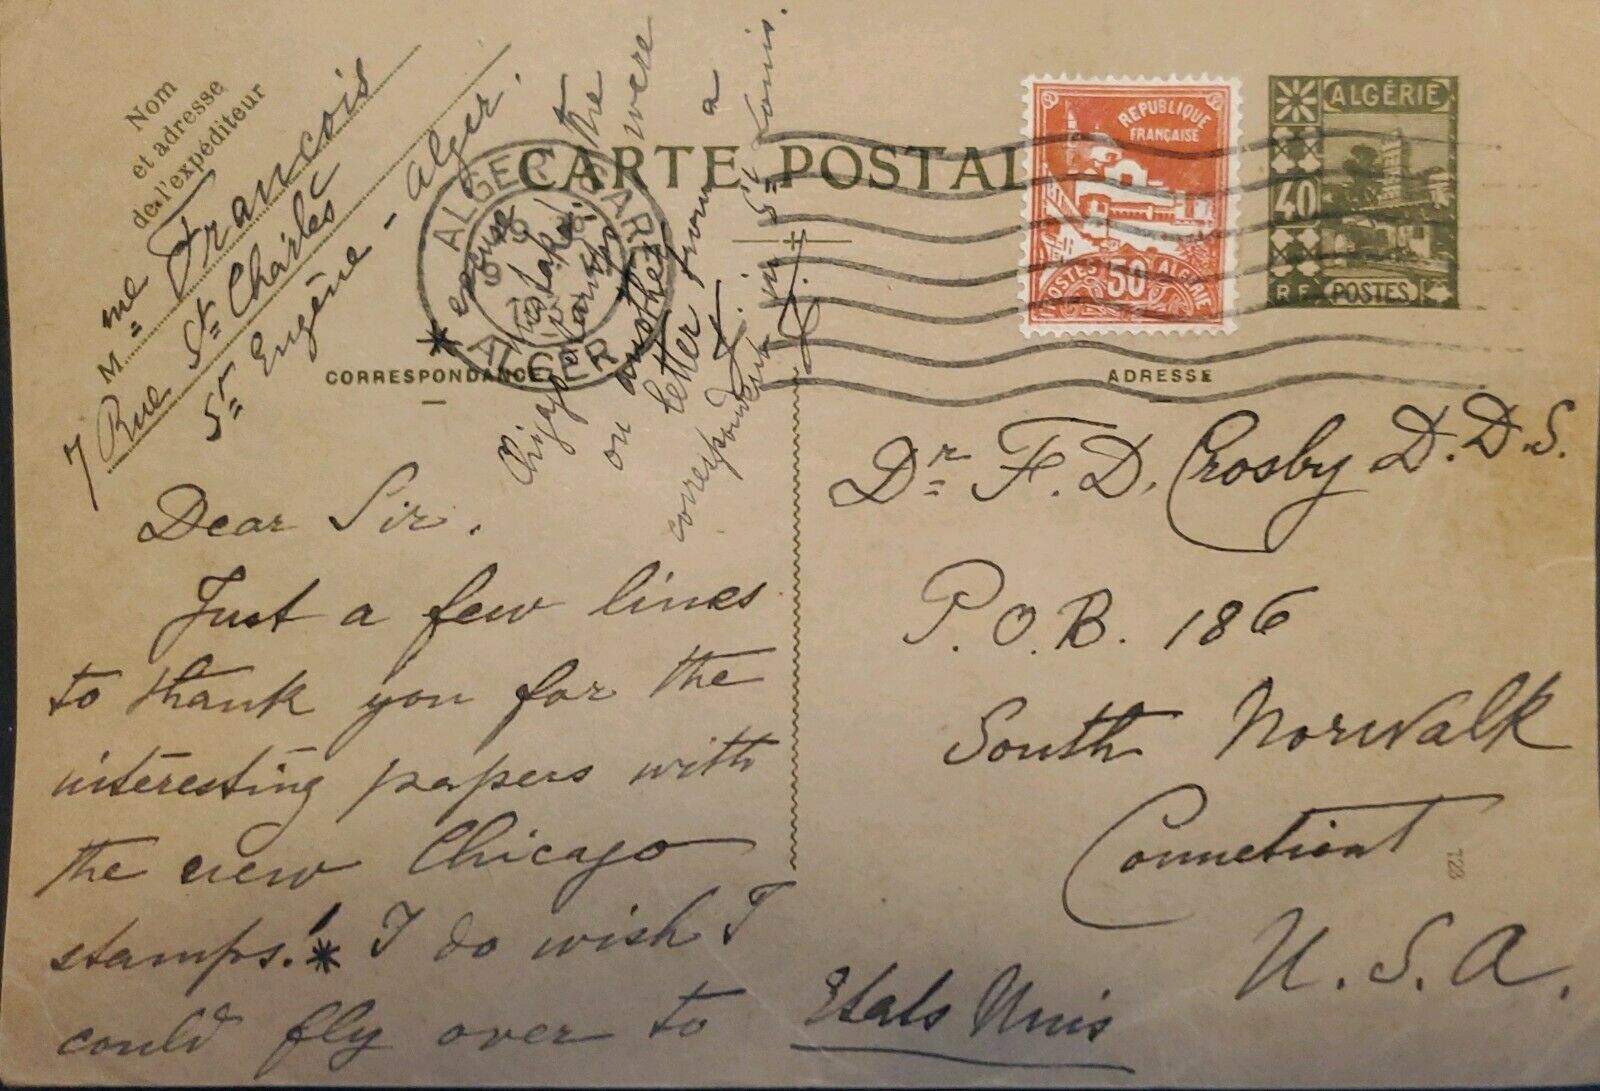 Nom
et adresse
de l'expéditeur
Mme François
7 Rue St Charles
St Eugène - Alger.
CARTE POSTALE
ALGER GARE
ALGER
* excuse
mistake!
Chicago stamps, the
on another were
letter from a
correspondent in St Louis.
F.
REPUBLIQUE
FRANÇAISE
POSTES 50 ALGERIE
ALGÉRIE
40
R F POSTES
CORRESPONDANCE
ADRESSE
Dear Sir.
Just a few lines
to thank you for the
interesting papers with
the new Chicago
stamps! * I do wish I
could fly over to
Dr F. D. Crosby D.D.S.
P.O.B. 186
South Norwalk
Connetient
U.S.A.
Etats Unis
723